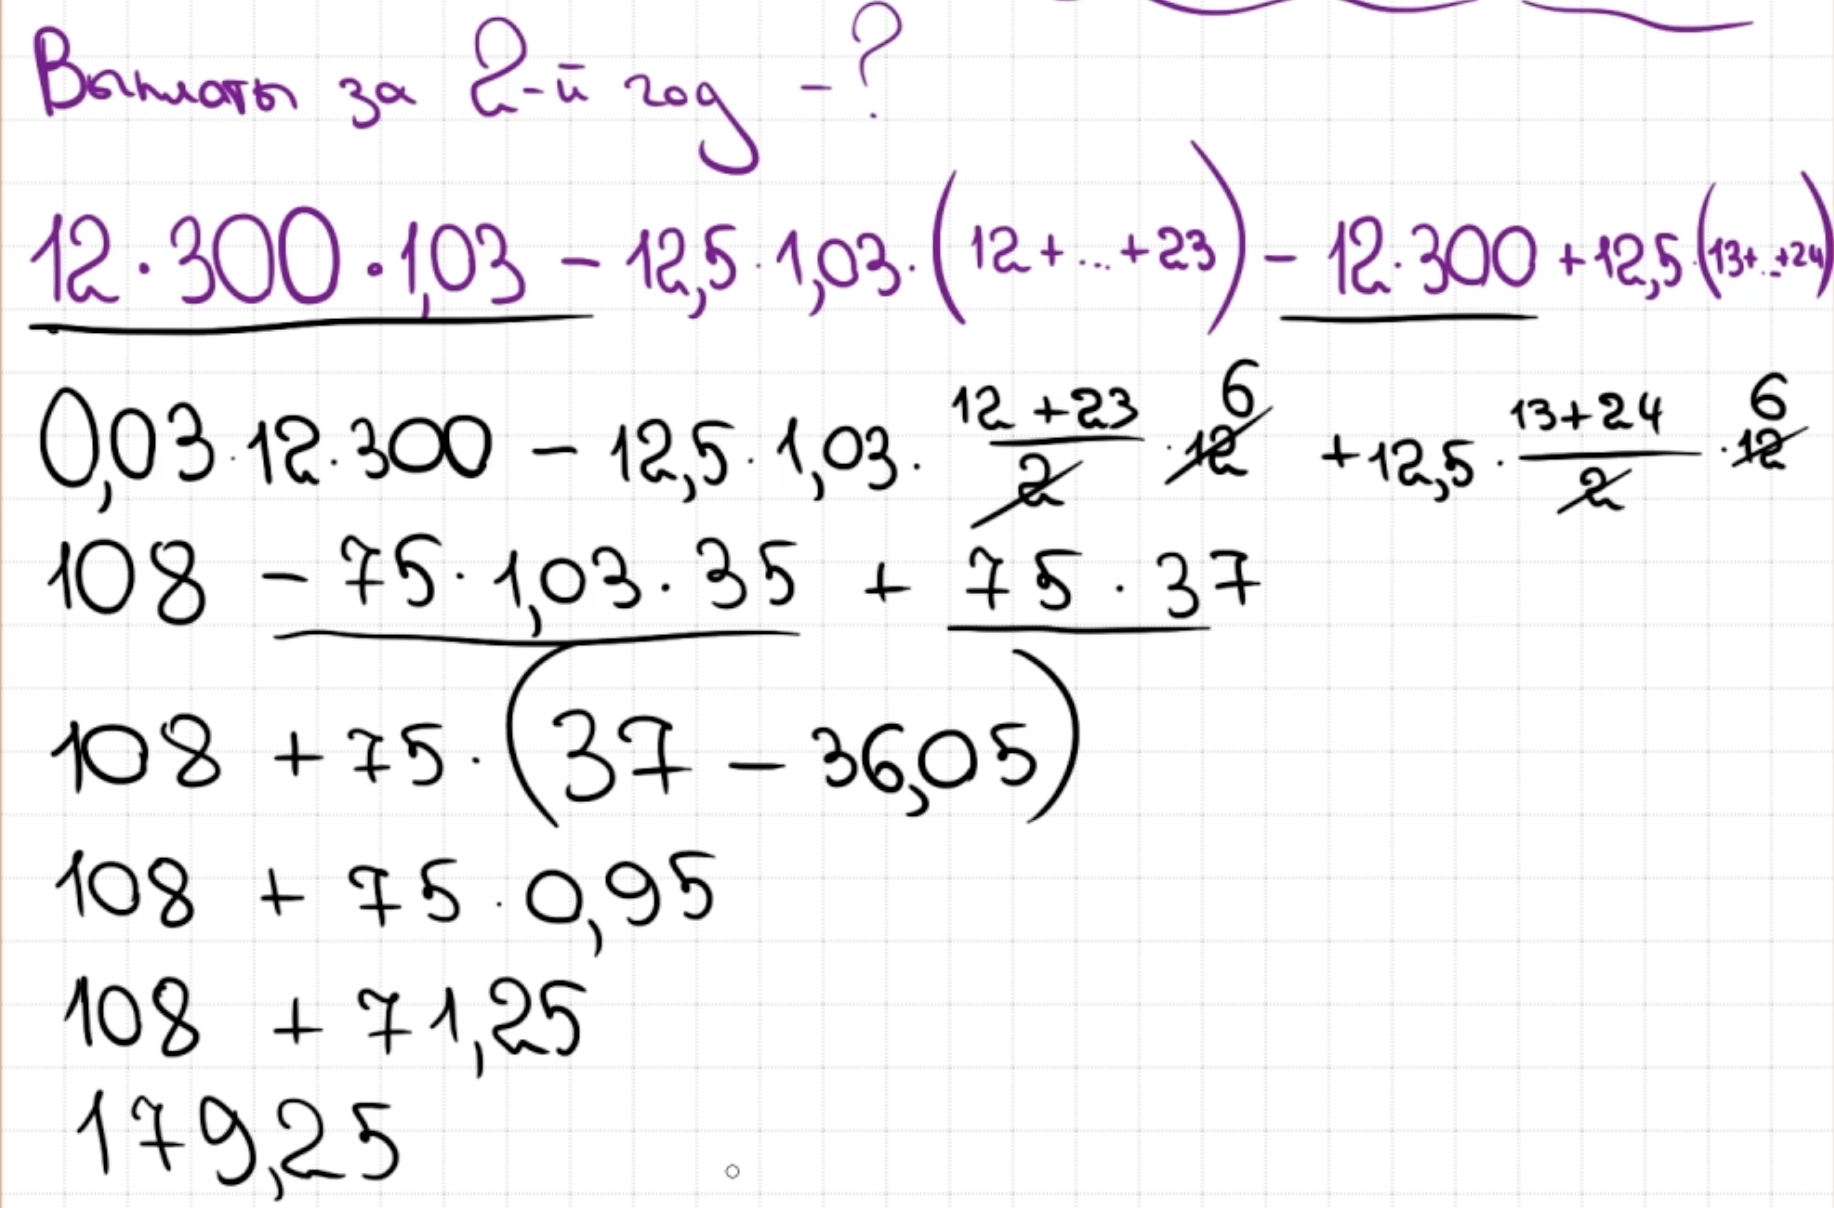 Выплаты за 2-й год - ?
12·300·1,03 - 12,5·1,03·(12+...+23) - 12·300 + 12,5·(13+...+24)
0,03·12·300 - 12,5·1,03· (12+23)/2 ·12 6 + 12,5· (13+24)/2 ·12 6
108 - 75·1,03·35 + 75·37
108 + 75·(37 - 36,05)
108 + 75·0,95
108 + 71,25
179,25